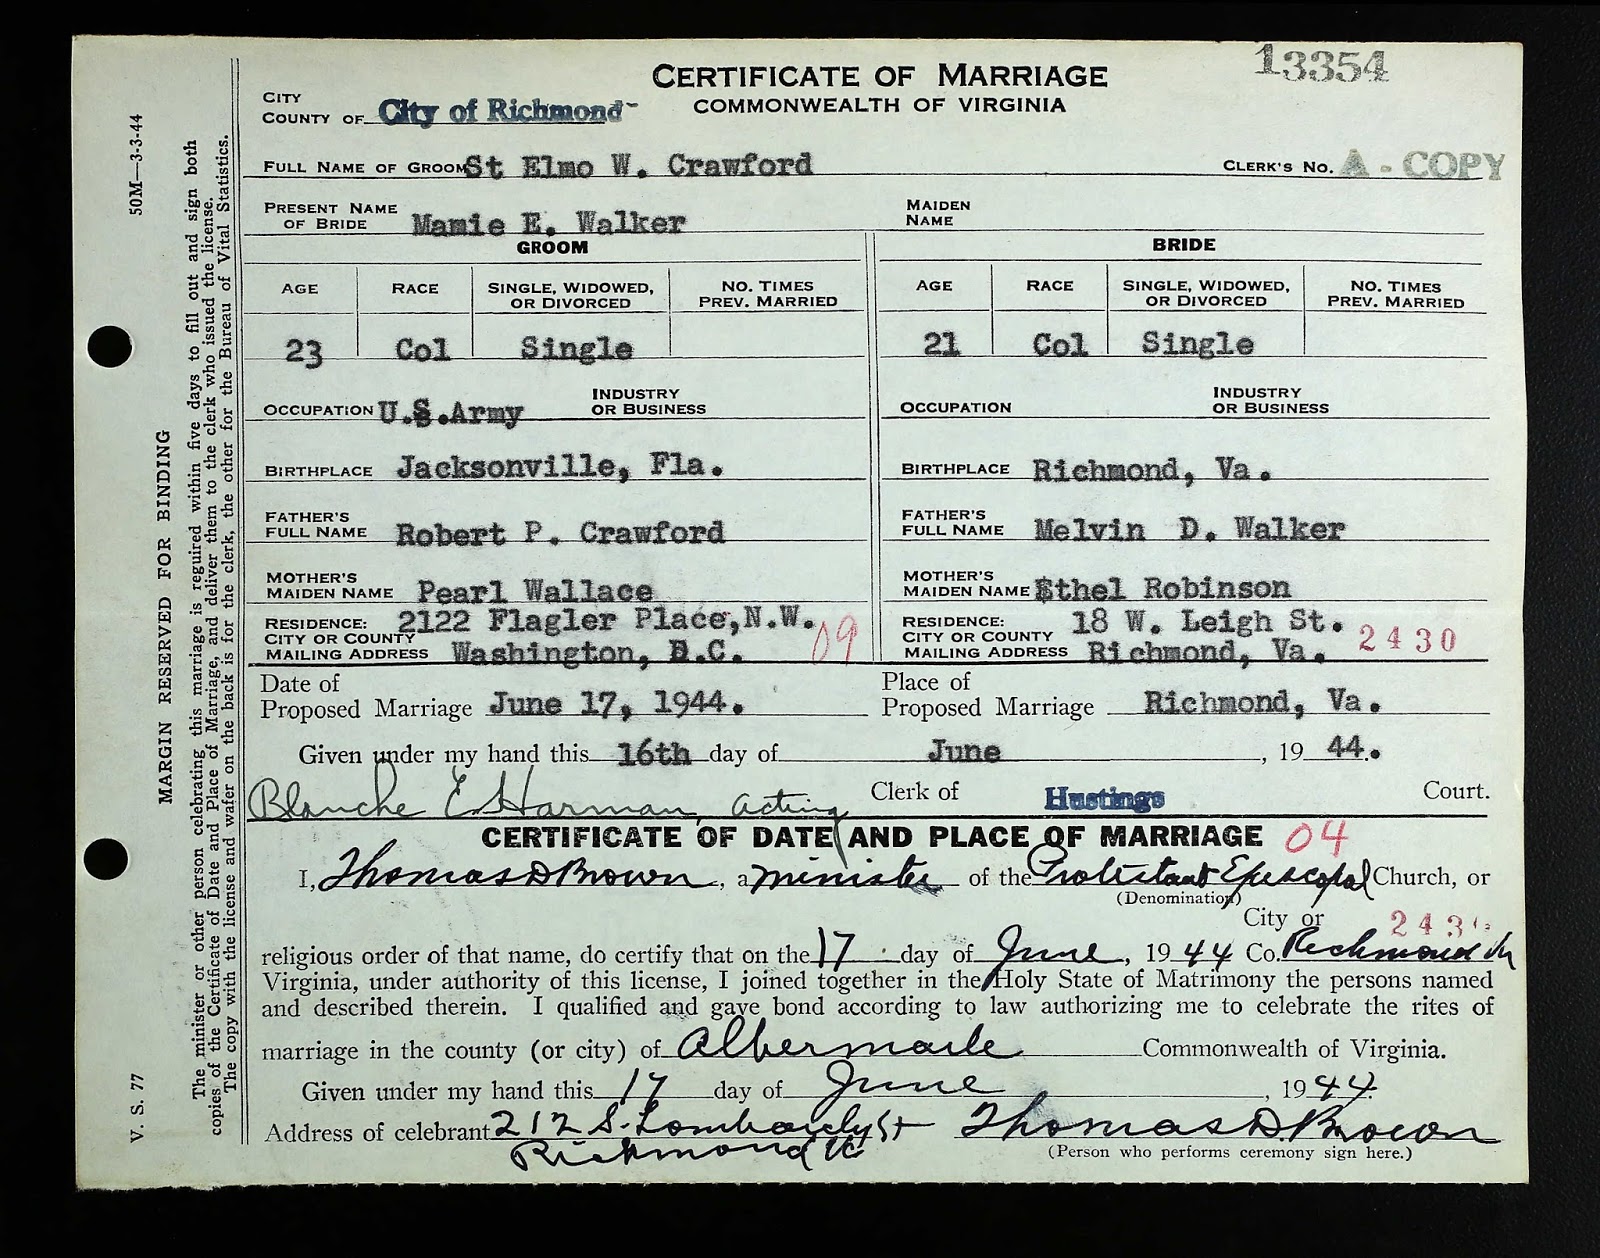 13354
CERTIFICATE OF MARRIAGE
COMMONWEALTH OF VIRGINIA
CITY
COUNTY OF City of Richmond-
FULL NAME OF GROOM St Elmo W. Crawford CLERK'S NO. A - COPY
PRESENT NAME OF BRIDE Mamie E. Walker MAIDEN NAME
GROOM BRIDE
AGE RACE SINGLE, WIDOWED, OR DIVORCED NO. TIMES PREV. MARRIED AGE RACE SINGLE, WIDOWED, OR DIVORCED NO. TIMES PREV. MARRIED
23 Col Single 21 Col Single
OCCUPATION U.S.Army INDUSTRY OR BUSINESS OCCUPATION INDUSTRY OR BUSINESS
BIRTHPLACE Jacksonville, Fla. BIRTHPLACE Richmond, Va.
FATHER'S FULL NAME Robert P. Crawford FATHER'S FULL NAME Melvin D. Walker
MOTHER'S MAIDEN NAME Pearl Wallace MOTHER'S MAIDEN NAME Ethel Robinson
RESIDENCE: 2122 Flagler Place,N.W. RESIDENCE: 18 W. Leigh St.
CITY OR COUNTY 09 CITY OR COUNTY 2430
MAILING ADDRESS Washington, D.C. MAILING ADDRESS Richmond, Va.
Date of Proposed Marriage June 17, 1944. Place of Proposed Marriage Richmond, Va.
Given under my hand this 16th day of June, 19 44.
Blanche E. Harman, acting Clerk of Hustings Court.
CERTIFICATE OF DATE AND PLACE OF MARRIAGE 04
I, Thomas D Brown, a minister of the Protestant Episcopal Church, or
(Denomination)
City or 243
religious order of that name, do certify that on the 17 day of June, 19 44 Co. Richmond in
Virginia, under authority of this license, I joined together in the Holy State of Matrimony the persons named
and described therein. I qualified and gave bond according to law authorizing me to celebrate the rites of
marriage in the county (or city) of Albermarle Commonwealth of Virginia.
Given under my hand this 17 day of June, 1944.
Address of celebrant 212 S. Lombardy St Thomas D. Brown
Richmond Va (Person who performs ceremony sign here.)
V. S. 77 MARGIN RESERVED FOR BINDING 50M—3-3-44
The minister or other person celebrating this marriage is required within five days to fill out and sign both
copies of the Certificate of Date and Place of Marriage, and deliver them to the clerk who issued the license.
The copy with the license and wafer on the back is for the clerk, the other for the Bureau of Vital Statistics.